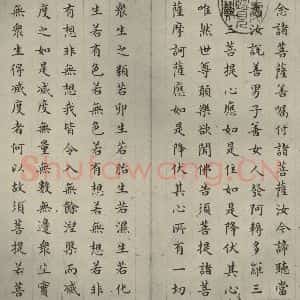 念諸菩薩善付囑諸菩薩汝今諦聽當
為汝說善男子善女人發阿耨多羅三
藐三菩提心應如是住如是降伏其心
唯然世尊願樂欲聞佛告須菩提諸菩
薩摩訶薩應如是降伏其心所有一切
眾生之類若卵生若胎生若濕生若化
生若有色若無色若有想若無想若非
有想非無想我皆令入無餘涅槃而滅
度之如是滅度無量無數無邊眾生實
無眾生得滅度者何以故須菩提若菩
Shufawang.CN